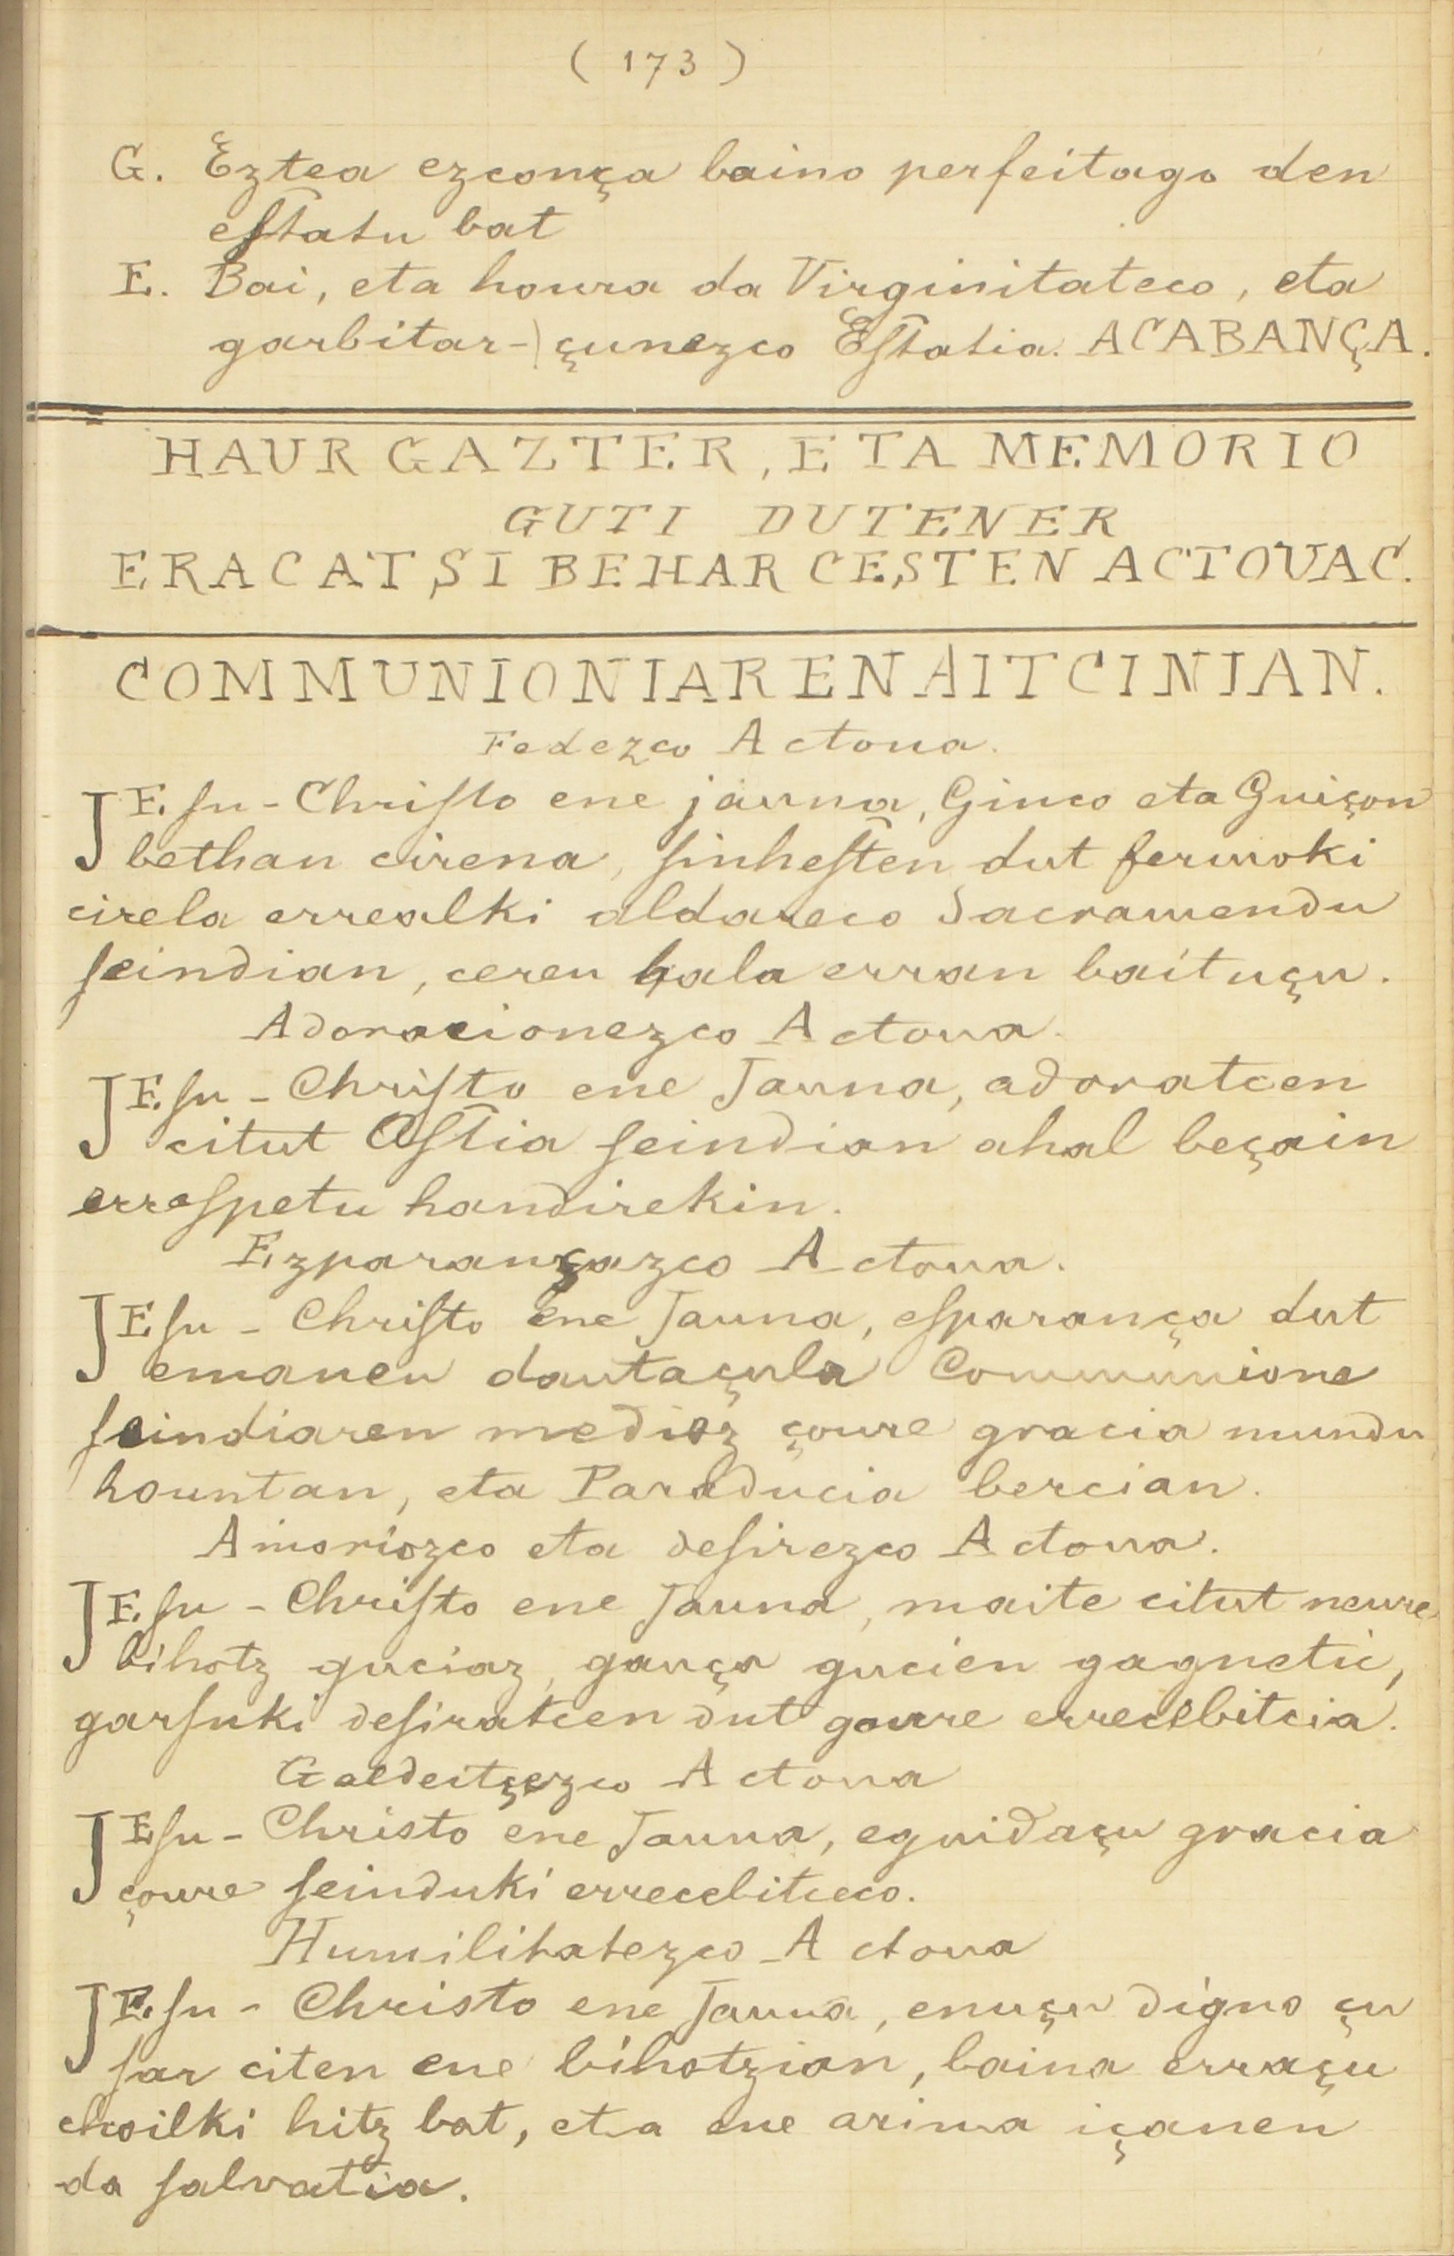 (173)
G. Eztea ezconça baino perfeitago den
eſtatu bat
E. Bai, eta houra da Virginitateco, eta
garbitar-) çunezco Eſtatia. ACABANÇA.
HAUR GAZTER, ETA MEMORIO
GUTI DUTENER
ERACATSI BEHAR CESTEN ACTOUAC.
COMMUNIONIAREN AITCINIAN.
Fedezco Actoua.
JEſu-Chriſto ene jauna, Ginco eta Guiçon
bethan cirena, ſinheſten dut fermoki
cirela errealki aldareco Sacramendu
ſeindian, ceren hala erran baituçu.
Adoracionezco Actoua.
JEſu-Chriſto ene Jauna, adoratcen
citut Oſtia ſeindian ahal beçain
erreſpetu handirekin.
Ezparançazco Actoua.
JEſu-Chriſto ene Jauna, eſparança dut
emanen dautaçula Communione
ſeindiaren medioz çoure gracia mundu
hountan, eta Paraducia bercian.
Amoriozco eta deſirezco Actoua.
JEſu-Chriſto ene Jauna, maite citut neure
bihotz guciaz, gauça gucien gagnetic,
garſuki deſiratcen dut goure errecebitcia.
Galdeitçezco Actoua
JEſu-Christo ene Jauna, eguidaçu gracia
çoure ſeinduki errecebitceco.
Humilitatezco Actoua
JEſu-Christo ene Jauna, enuçu digno çu
ſar citen ene bihotzian, baina erraçu
choilki hitz bat, eta ene arima içanen
da ſalvatia.